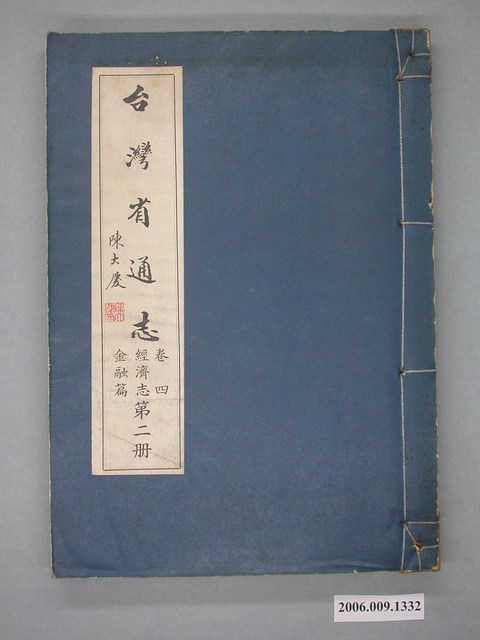 台灣省通志
卷四
經濟志第二册
金融篇
陳大慶
2006.009.1332